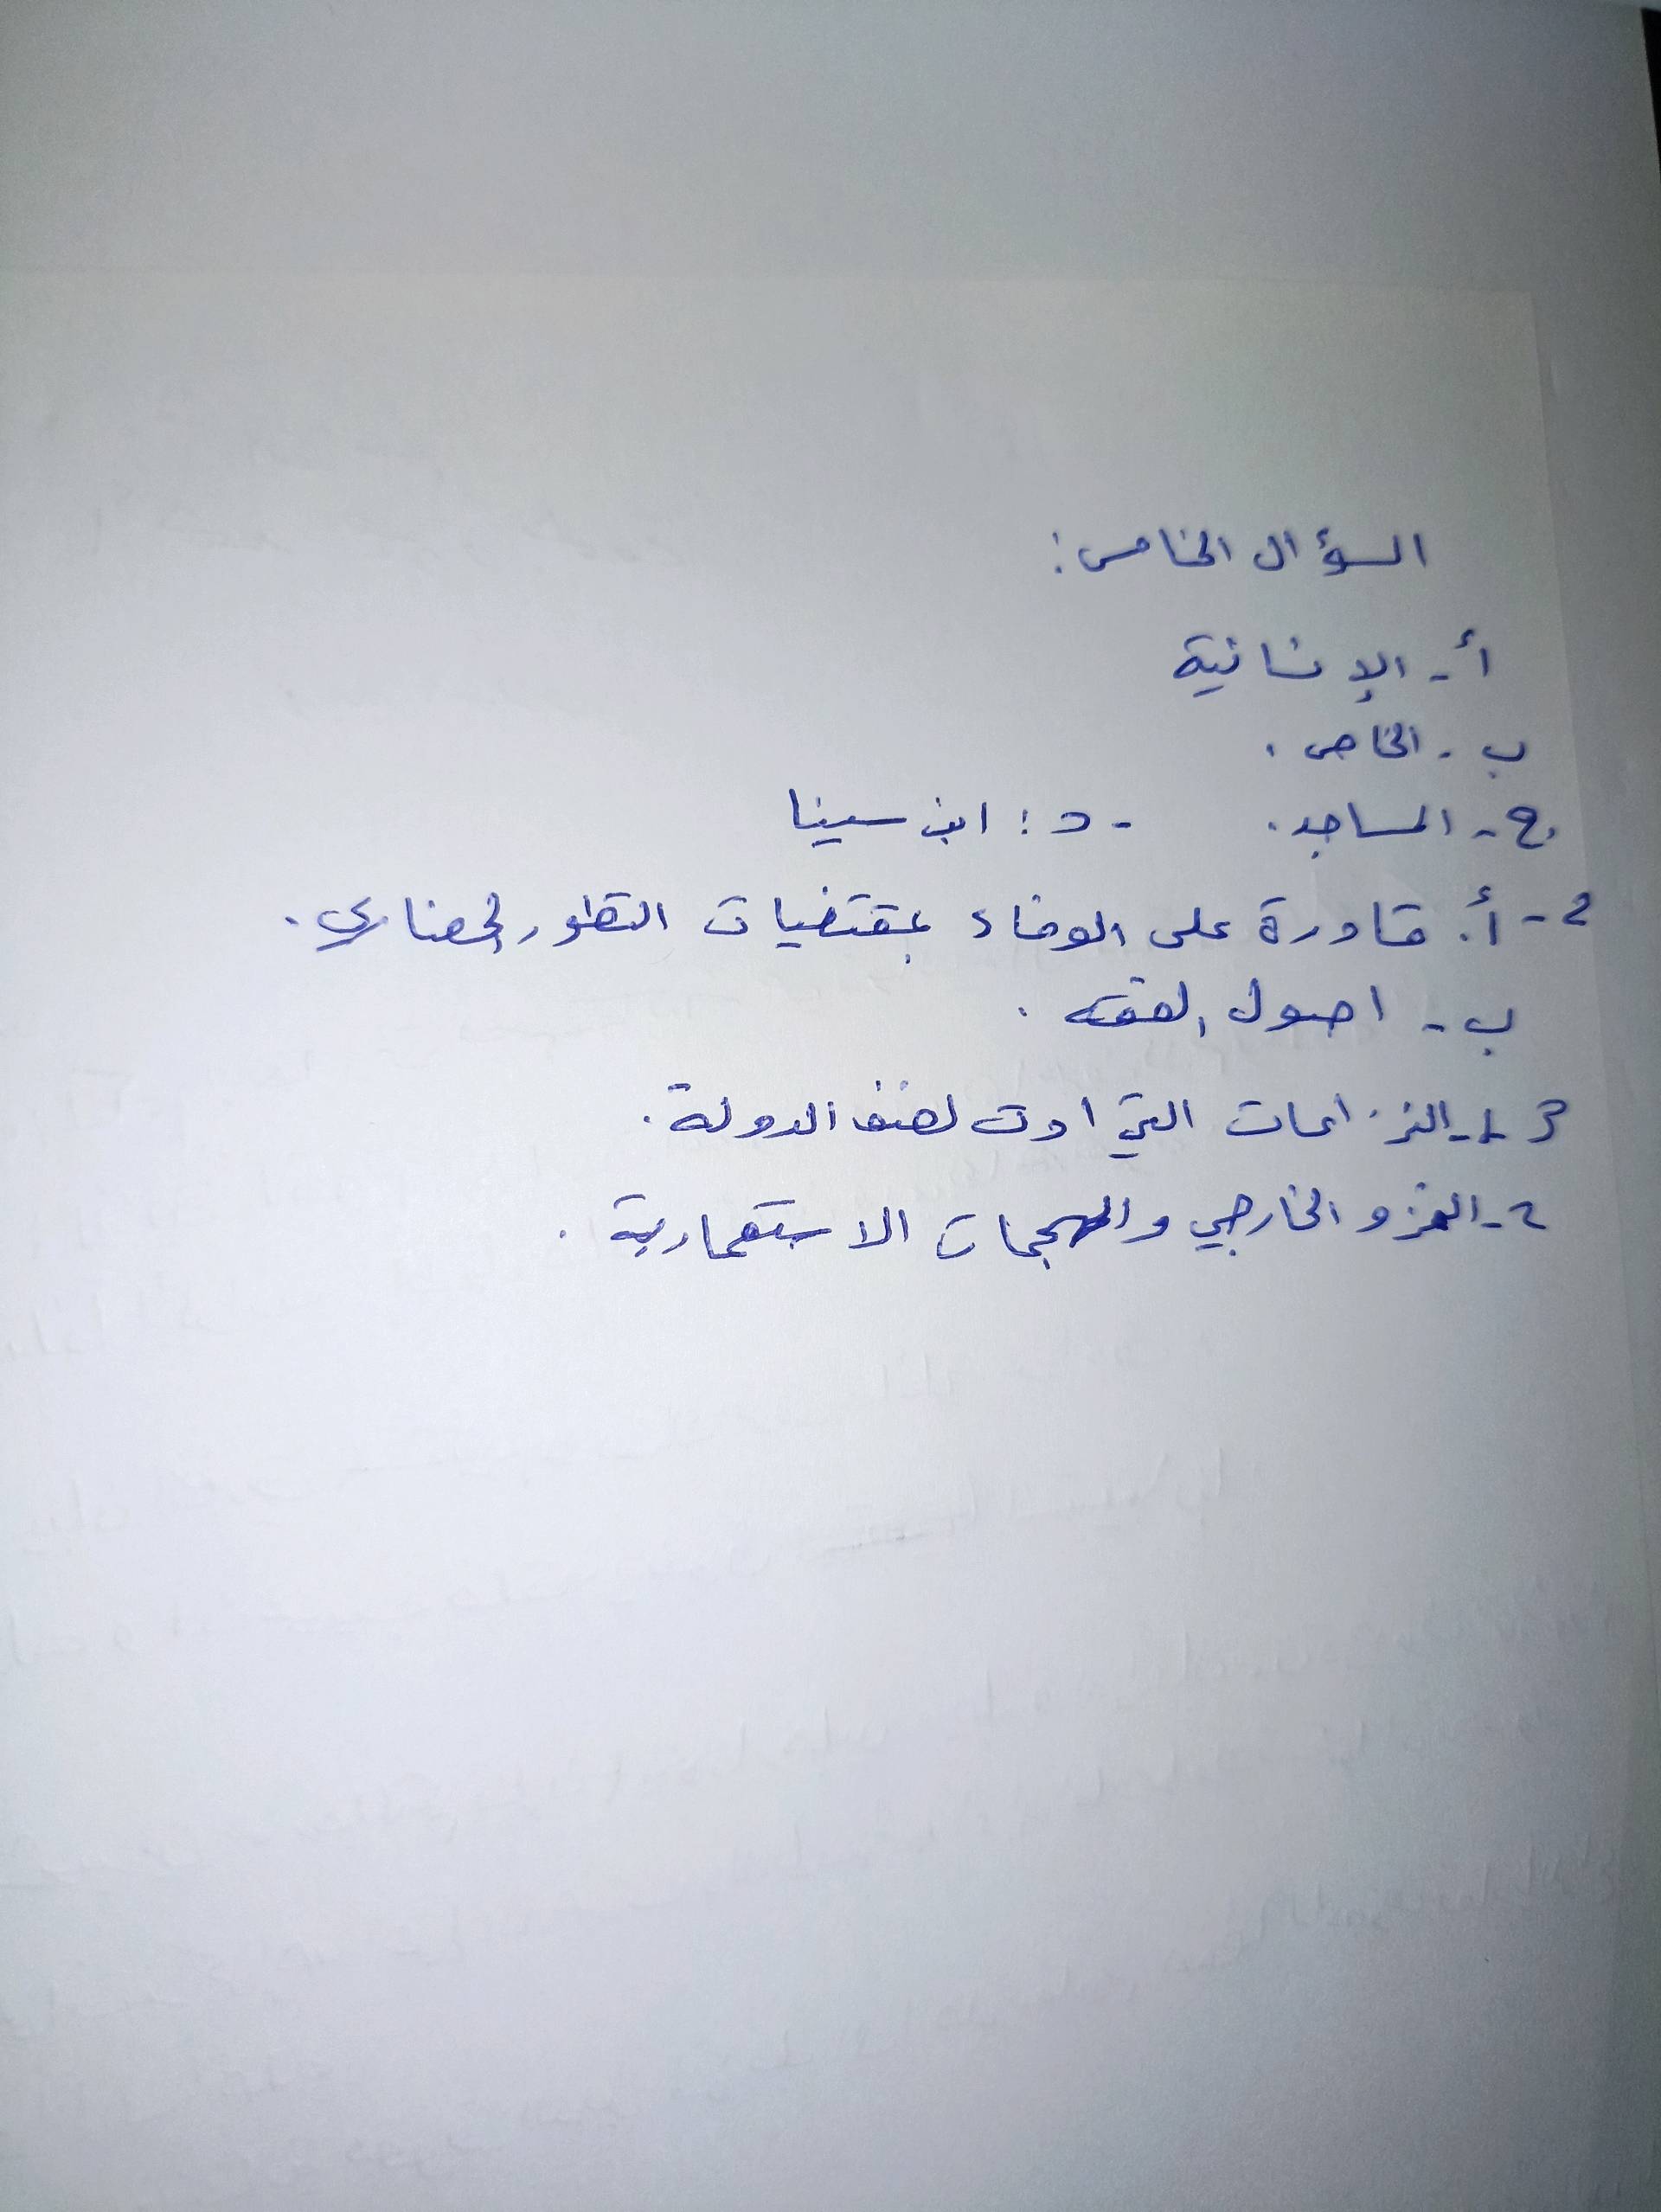 السؤال الخامس:
أ- الإنسانية
ب- الخاص.
ج- المساجد. - د: ابن سينا
2- أ. قادرة على الوفاء بمقتضيات التطور الحضاري.
ب- اصول الفقه.
3 1- النزاعات التي ادت لضعف الدولة.
2- الغزو الخارجي والهجمات الاستعمارية.